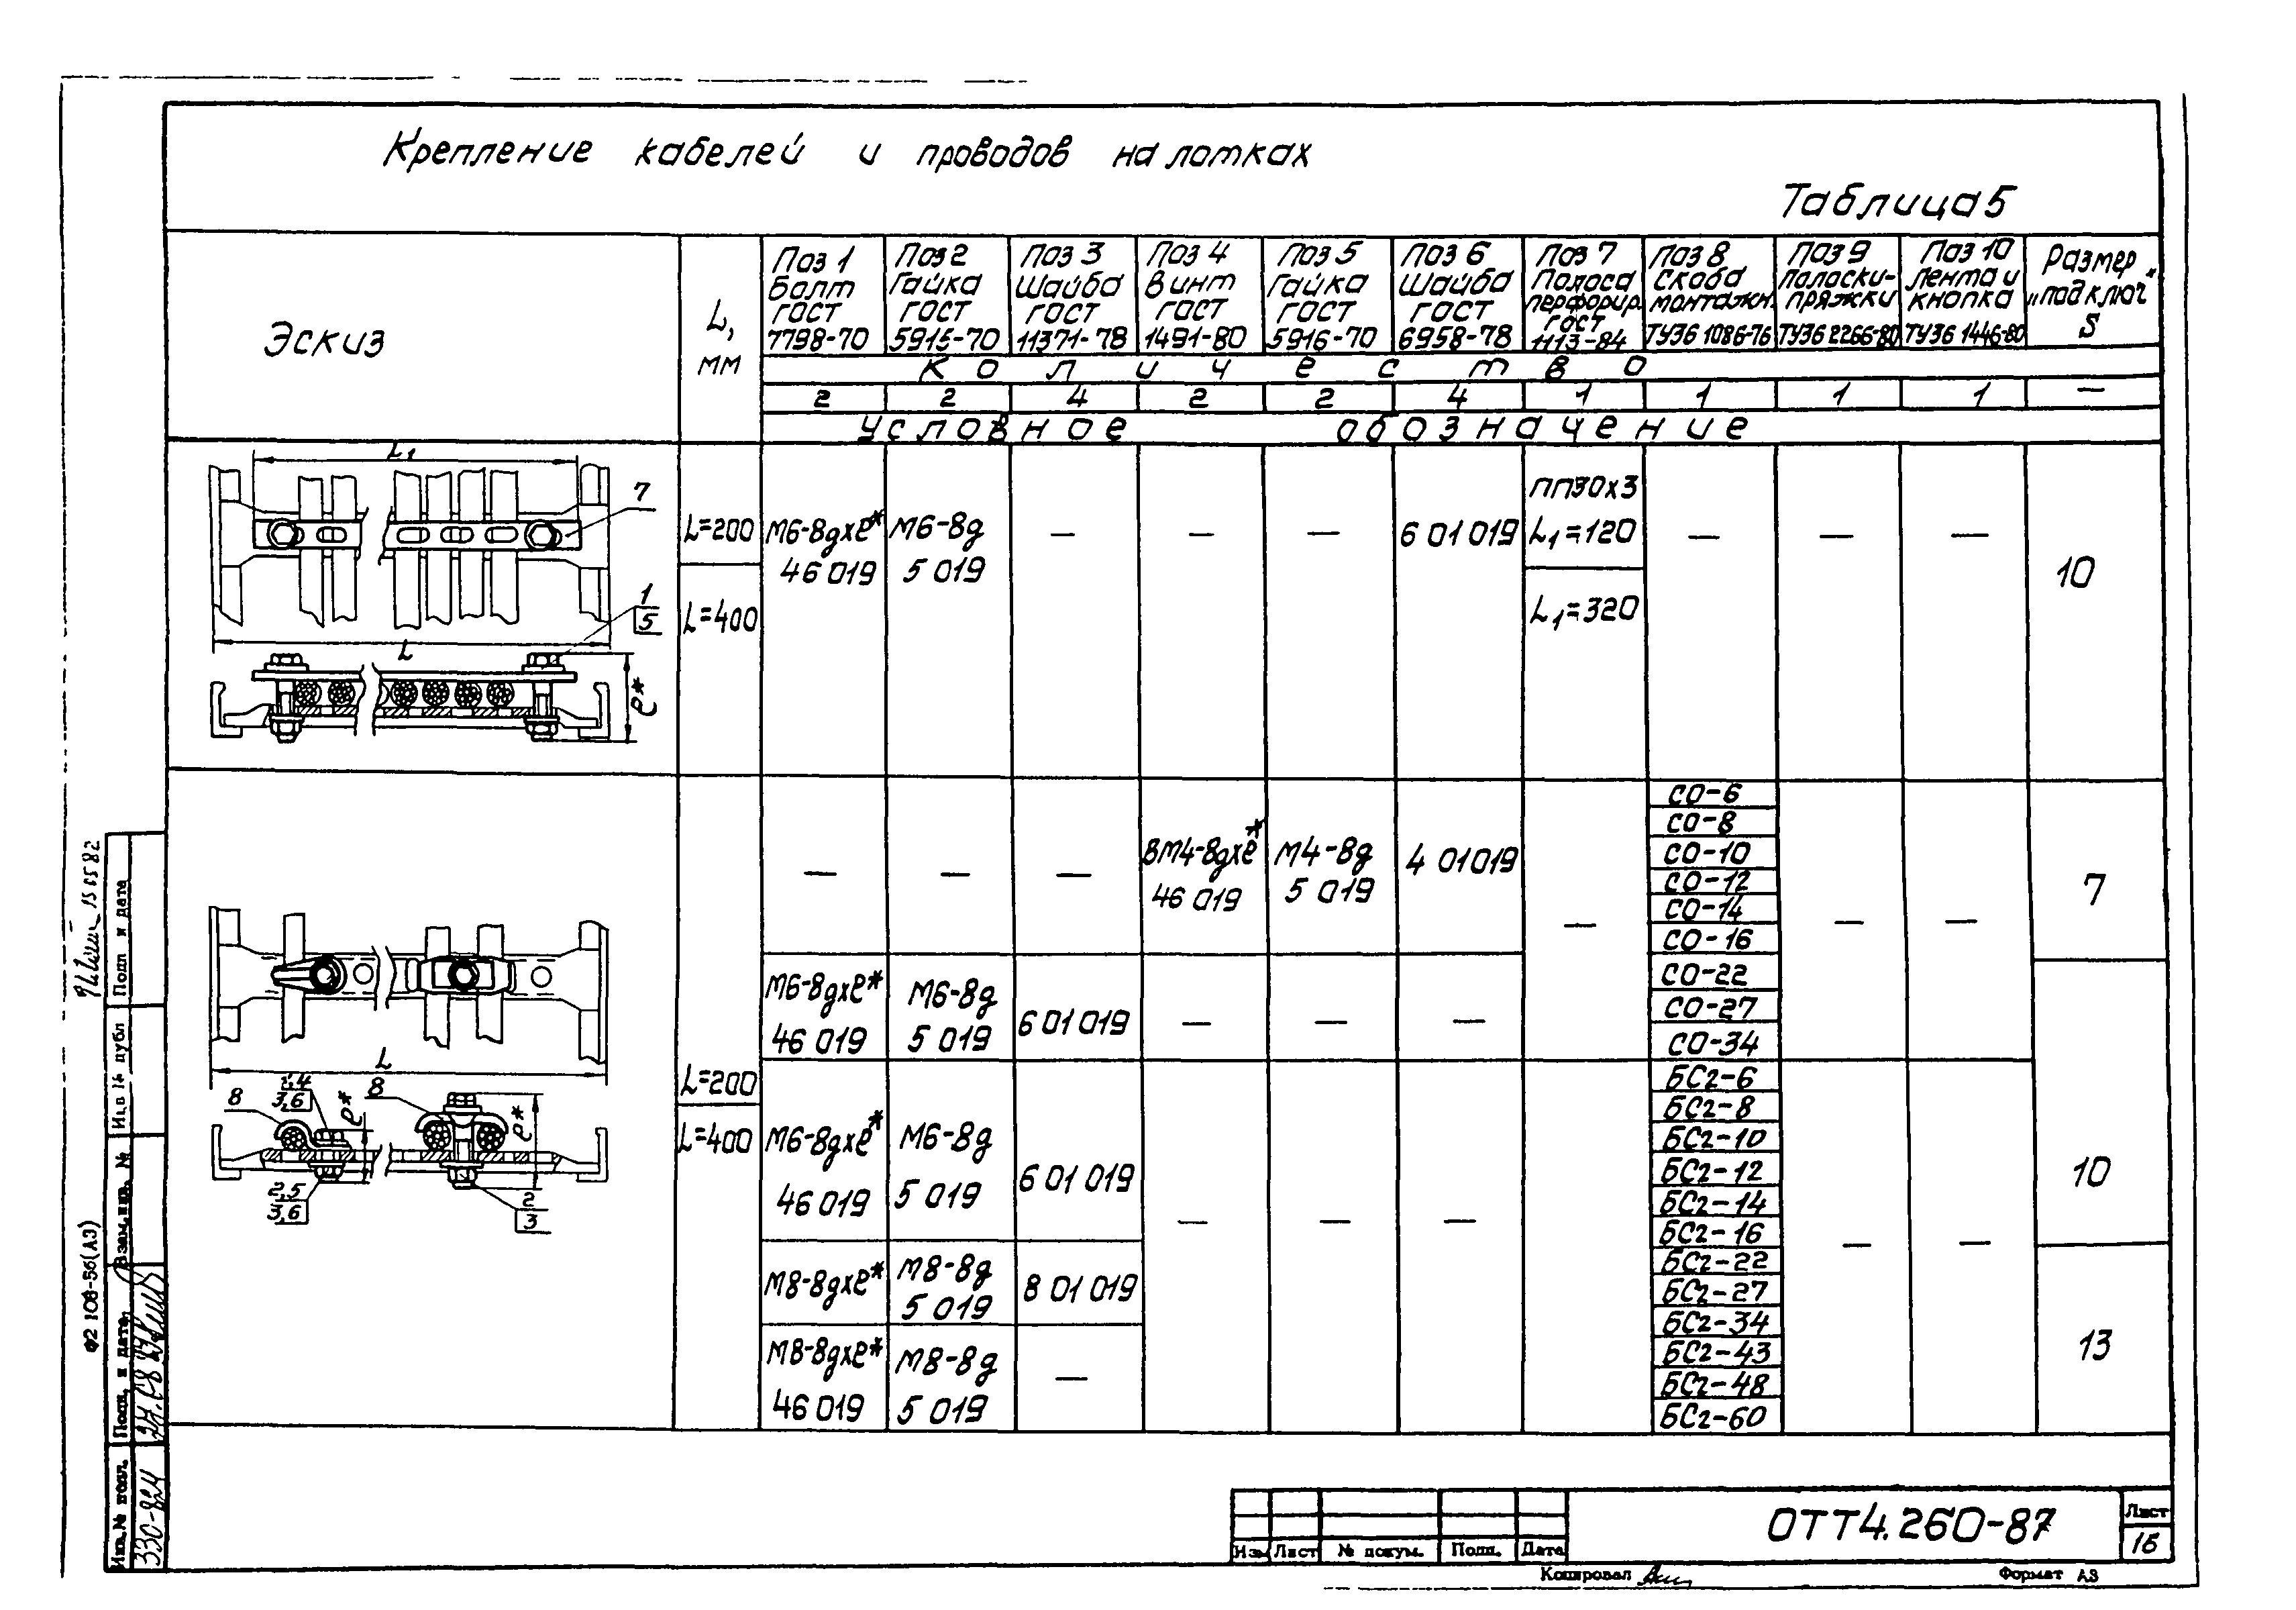 Крепление кабелей и проводов на лотках
Таблица 5
Эскиз
L,
мм
Поз 1
Болт
ГОСТ
7798-70
Поз 2
Гайка
ГОСТ
5915-70
Поз 3
Шайба
ГОСТ
11371-78
Поз 4
Винт
ГОСТ
1491-80
Поз 5
Гайка
ГОСТ
5916-70
Поз 6
Шайба
ГОСТ
6958-78
Поз 7
Полоса
перфорир.
ГОСТ
1113-84
Поз 8
Скоба
монтажн.
ТУ36 1086-76
Поз 9
Полоски-
пряжки
ТУ36 2266-80
Поз 10
Лента и
кнопка
ТУ36 1446-80
Размер
„под ключ"
S
Количество
2 2 4 2 2 4 1 1 1 1 —
Условное обозначение
L1
7
1
5
L
l*
L=200
L=400
М6-8gхl*
46 019
М6-8g
5 019
—
—
—
6 01 019
ПП30х3
L1=120
L1=320
—
—
—
10
L
8
3,6
l*
8
l*
2,5
3,6
2
3
L=200
L=400
—
—
—
ВМ4-8gхl*
46 019
М4-8g
5 019
4 01019
—
СО-6
СО-8
СО-10
СО-12
СО-14
СО-16
—
—
7
М6-8gхl*
46 019
М6-8g
5 019
6 01 019
—
—
—
СО-22
СО-27
СО-34
М6-8gхl*
46 019
М6-8g
5 019
6 01 019
—
—
—
БС2-6
БС2-8
БС2-10
БС2-12
БС2-14
БС2-16
—
—
10
М8-8gхl*
М8-8g
5 019
8 01 019
БС2-22
БС2-27
БС2-34
13
М8-8gхl*
46 019
М8-8g
5 019
—
БС2-43
БС2-48
БС2-60
Подп и дата
Инв № дубл
Взам. инв. №
Подп. и дата
Инв. № подл.
330-824
Ф2 108-56(А3)
Изм Лист № докум. Подп. Дата
ОТТ4.260-87
Лист
16
Копировал
Формат А3